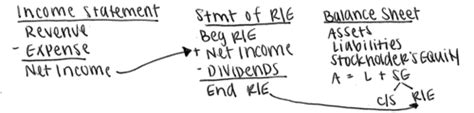 Income Statement
Revenue
- Expense
Net Income
Stmt of R/E
Beg R/E
+ Net Income
- Dividends
End R/E
Balance Sheet
Assets
Liabilities
Stockholder's Equity
A = L + SE
C/S R/E